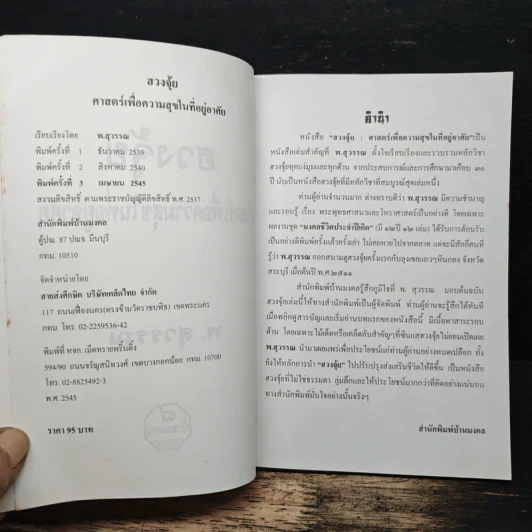 ฮวงจุ้ย
ศาสตร์เพื่อความสุขในที่อยู่อาศัย
เรียบเรียงโดย พ.สุวรรณ
พิมพ์ครั้งที่ 1 ธันวาคม 2539
พิมพ์ครั้งที่ 2 สิงหาคม 2540
พิมพ์ครั้งที่ 3 เมษายน 2545
สงวนลิขสิทธิ์ ตามพระราชบัญญัติลิขสิทธิ์ พ.ศ. 2537
สำนักพิมพ์บ้านมงคล
ตู้ปณ. 87 ปณจ. มีนบุรี
กทม. 10510
จัดจำหน่ายโดย
สายส่งศึกษิต บริษัทเคล็ดไทย จำกัด
117 ถนนเฟื่องนคร(ตรงข้ามวัดราชบพิธ) เขตพระนคร
กทม. โทร. 02-2259536-42
พิมพ์ที่ หจก. เม็ดทรายพริ้นติ้ง
594/90 ถนนจรัญสนิทวงศ์ เขตบางกอกน้อย กทม. 10700
โทร. 02-8825492-3
พ.ศ. 2545
ราคา 95 บาท
คำนำ
หนังสือ "ฮวงจุ้ย : ศาสตร์เพื่อความสุขในที่อยู่อาศัย"เป็น
หนังสือเล่มสำคัญที่ พ.สุวรรณ ตั้งใจเรียบเรียงและรวบรวมหลักวิชา
ฮวงจุ้ยทุกแง่มุมและทุกด้าน จากประสบการณ์และการศึกษามาเกือบ ๓๐
ปี นับเป็นหนังสือฮวงจุ้ยที่มีหลักวิชาที่สมบูรณ์สุดเล่มหนึ่ง
ท่านผู้อ่านจำนวนมาก ต่างทราบดีว่า พ.สุวรรณ มีความชำนาญ
และรอบรู้ เรื่อง พระพุทธศาสนาและโหราศาสตร์เป็นอย่างดี โดยเฉพาะ
ผลงานชุด "มงคลชีวิตประจำปีเกิด" (มี ๑๒ปี ๑๒ เล่ม) ได้รับการต้อนรับ
เป็นอย่างดีพิมพ์ครั้งแล้วครั้งเล่า ไม่เคยหายไปจากตลาด แต่จะมีสักกี่คนที่
รู้ว่า พ.สุวรรณ ออกสนามดูฮวงจุ้ยครั้งแรกกับลุงของเขาแถวๆหินกอง จังหวัด
สระบุรี เมื่อต้นปี พ.ศ.๒๕๑๑
สำนักพิมพ์บ้านมงคลรู้สึกภูมิใจที่ พ. สุวรรณ มอบต้นฉบับ
ฮวงจุ้ยเล่มนี้ให้ทางสำนักพิมพ์เป็นผู้จัดพิมพ์ ท่านผู้อ่านจะรู้สึกได้ทันที
เมื่อพลิกดูสารบัญและเริ่มอ่านบทแรกของหนังสือนี้ มีเนื้อหาสาระรอบ
ด้าน โดยเฉพาะไม้เด็ดหรือเคล็ดลับสำคัญๆที่ซินแสฮวงจุ้ยไม่ยอมเปิดเผย
พ.สุวรรณ นำมาเผยแพร่เพื่อประโยชน์แก่ท่านผู้อ่านอย่างหมดเปลือก ทั้ง
ยังให้หลักการนำ "ฮวงจุ้ย" ไปปรับปรุงส่งเสริมชีวิตให้ดีขึ้น เป็นหนังสือ
ฮวงจุ้ยที่ไม่ใช่ธรรมดา ลุ่มลึกและให้ประโยชน์มากกว่าที่คิดอย่างแน่นอน
ทางสำนักพิมพ์มั่นใจอย่างนั้นจริงๆ
สำนักพิมพ์บ้านมงคล